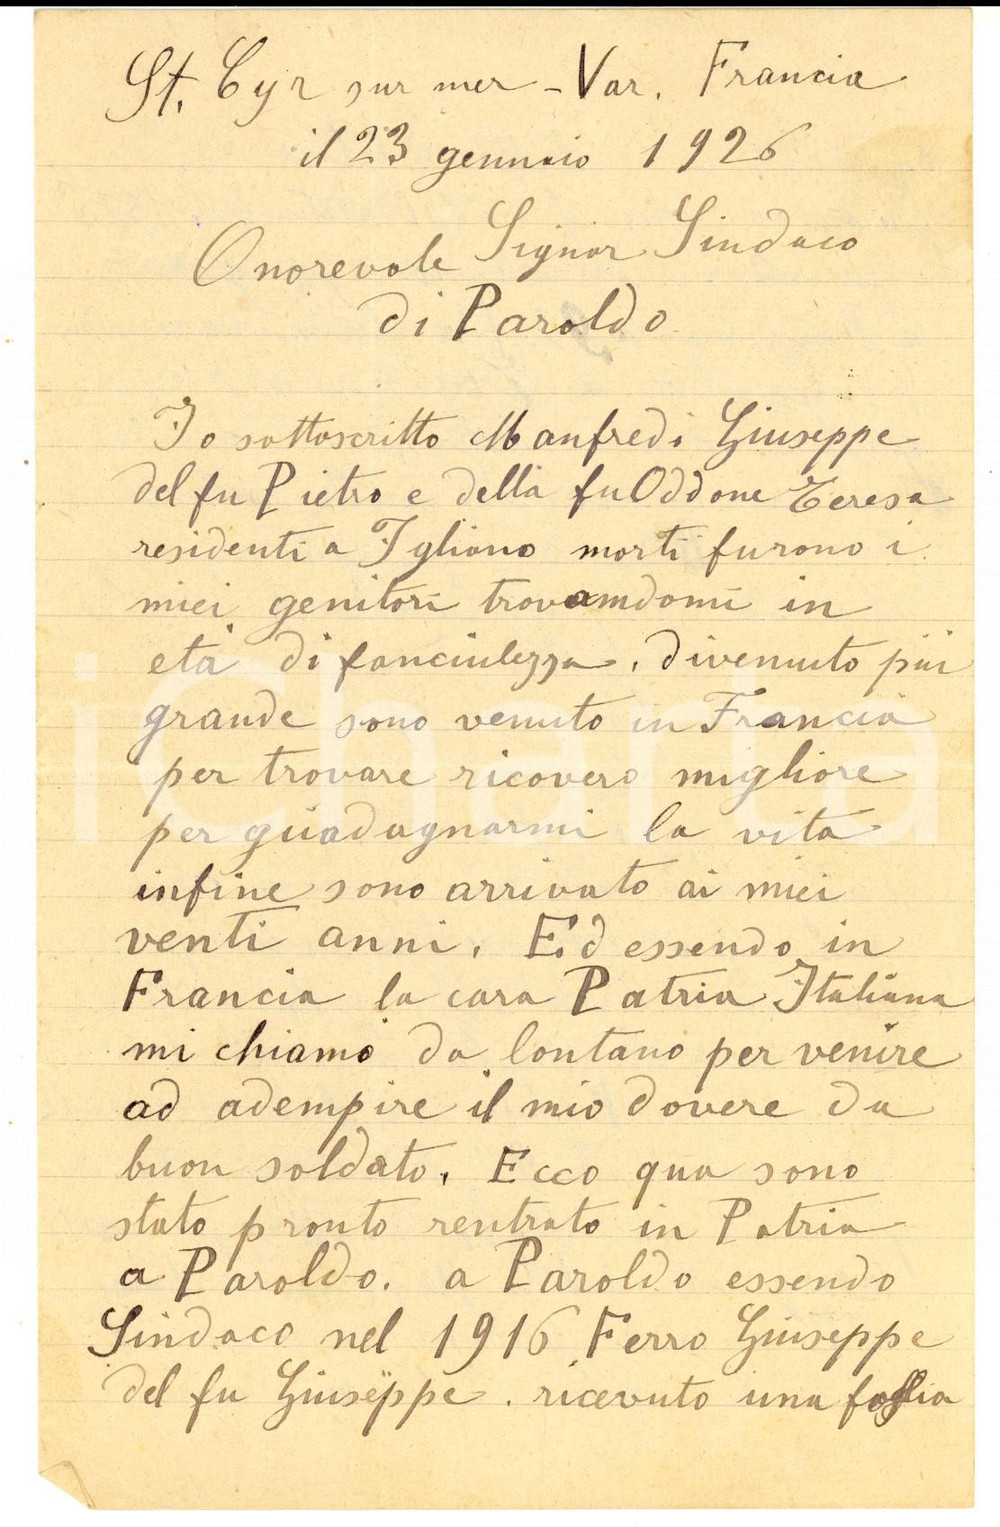 St. Cyr sur mer - Var. Francia
il 23 gennaio 1926
Onorevole Signor Sindaco
di Paroldo
Io sottoscritto Manfredi Giuseppe
del fu Pietro e della fu Oddone Teresa
residenti a Igliano morti furono i
miei genitori trovamdomi in
età di fanciulezza, divenuto più
grande sono venuto in Francia
per trovare ricovero migliore
per guadagnarmi la vita
infine sono arrivato ai miei
venti anni. Ed essendo in
Francia la cara Patria Italiana
mi chiamò da lontano per venire
ad adempire il mio dovere da
buon soldato. Ecco qua sono
stato pronto rentrato in Patria
a Paroldo. a Paroldo essendo
Sindaco nel 1916 Ferro Giuseppe
del fu Giuseppe. ricevuto una foglia